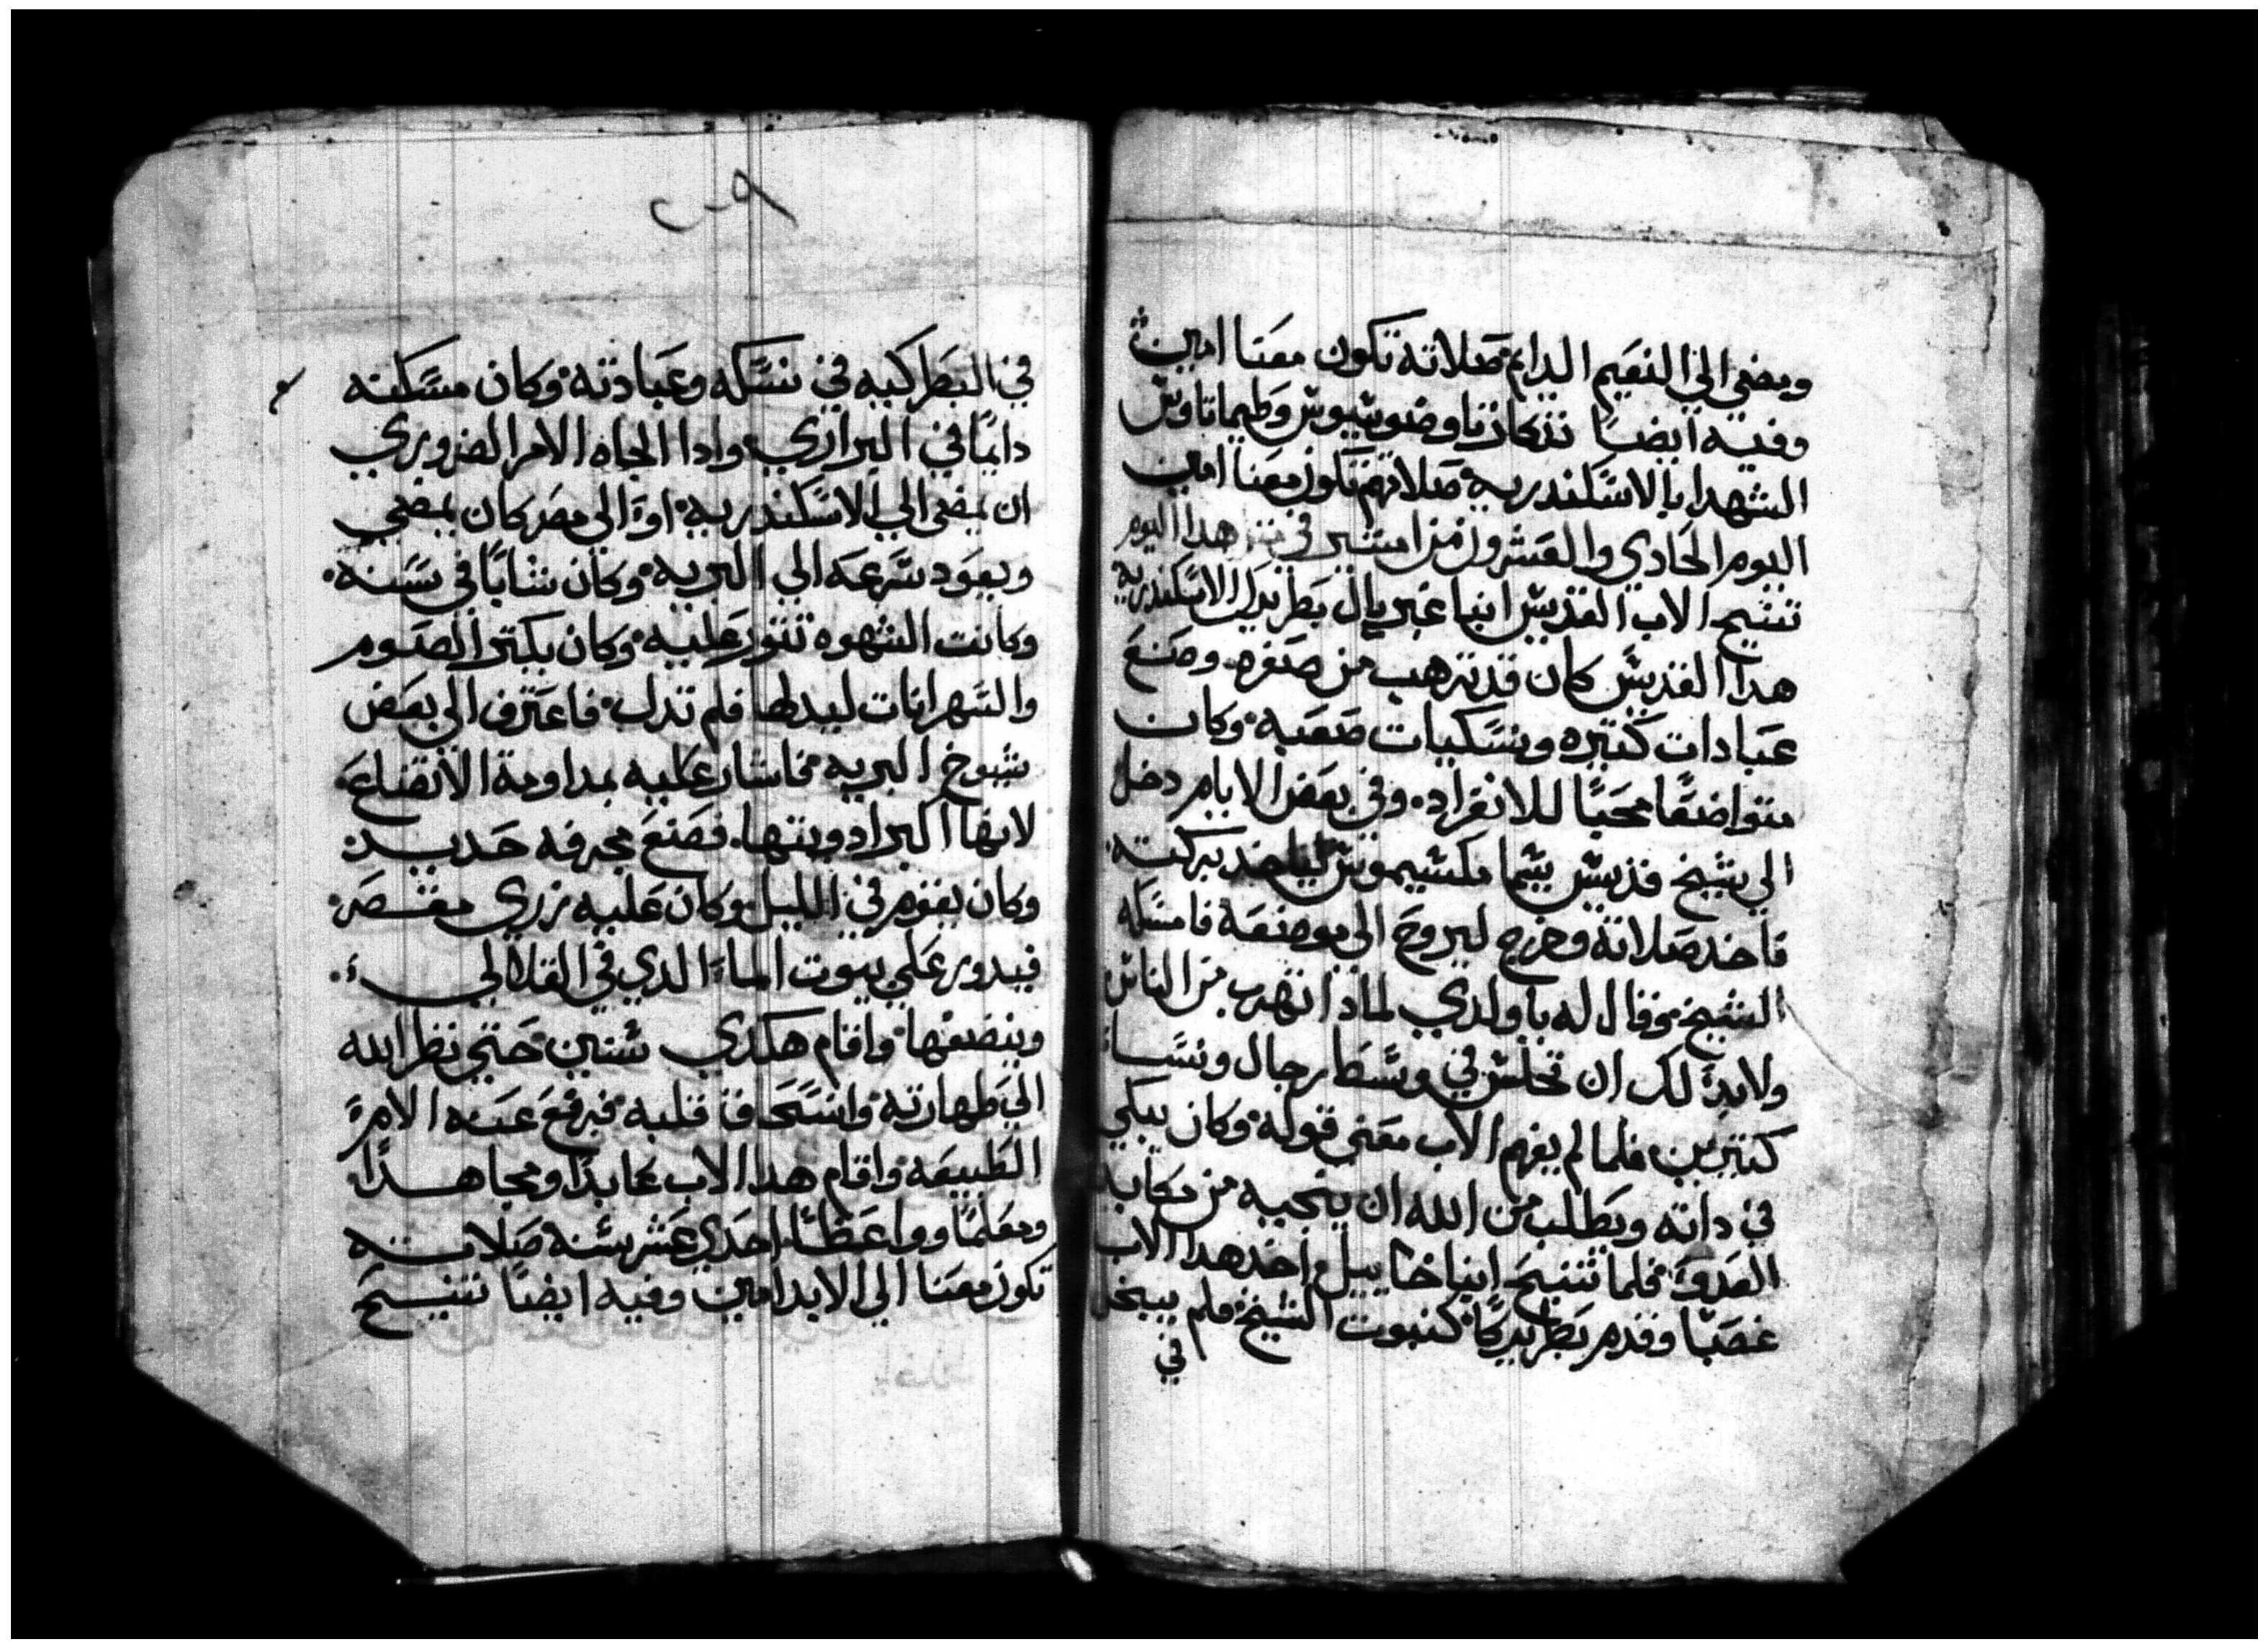 ويمضي الي النعيم الدايم صلاته تكون معنا امين
وفيه ايضًا تدكار تاوضوسيوس وطيماتاوس
الشهدا بالاسكندريه صلاتهم تكون معنا امين
اليوم الحادي والعشرون من امشير في هدا اليوم
تنيح الاب القديس انبا غبريال بطريرك الاسكندريه
هدا القديس كان قد ترهب من صغره وصنع
عبادات كتيره ونسكيات صعبه وكان
متواضعًا محبًا للانفراد وفي بعض الايام دخل
الي شيخ قديس يسما مكسيموس لياخد بركته
فاخد صلاته وخرج ليروح الي موضعه فامسكه
الشيخ وقال له ياولدي لمادا تهرب من الناس
ولابد لك ان تجلس في وسط رجال ونسا
كتيرين فلما لم يفهم الاب معني قوله وكان يبكي
في داته ويطلب من الله ان ينجيه من مكايد
العدو فلما تنيح انبا خاييل اخد هدا الاب
غصبًا وقدم بطريركًا كنبوت الشيخ فلم يبخل
في
٢٠٩
في البطركيه في نسكه وعبادته وكان مسكنه
دايمًا في البراري وادا الجاه الامر الضروري
ان يمضي الي الاسكندريه او الي مصر كان يمضي
ويعود سرعه الي البريه وكان شابًا في سنه
وكانت الشهوه تتور عليه وكان يكتر الصوم
والسهرانات ليدلها فلم تدل فاعترف الي بعض
شيوخ البريه فاشار عليه بمداومة الاتضاع
لانها اكبر ادويتها فصنع مجرفه حديد
وكان يقوم في الليل وكان عليه زري مقصر
فيدور علي بيوت الماء الدي في القلالي
وينضفها واقام هكدي سنتين حتي نظر الله
الي طهارته وانسحاق قلبه فرفع عنه الامر
الطبيعه واقام هدا الاب عابدًا ومجاهدًا
ومعلمًا وواعظًا احدي عشر سنه صلاته
تكون معنا الي الابد امين وفيه ايضًا تنيح